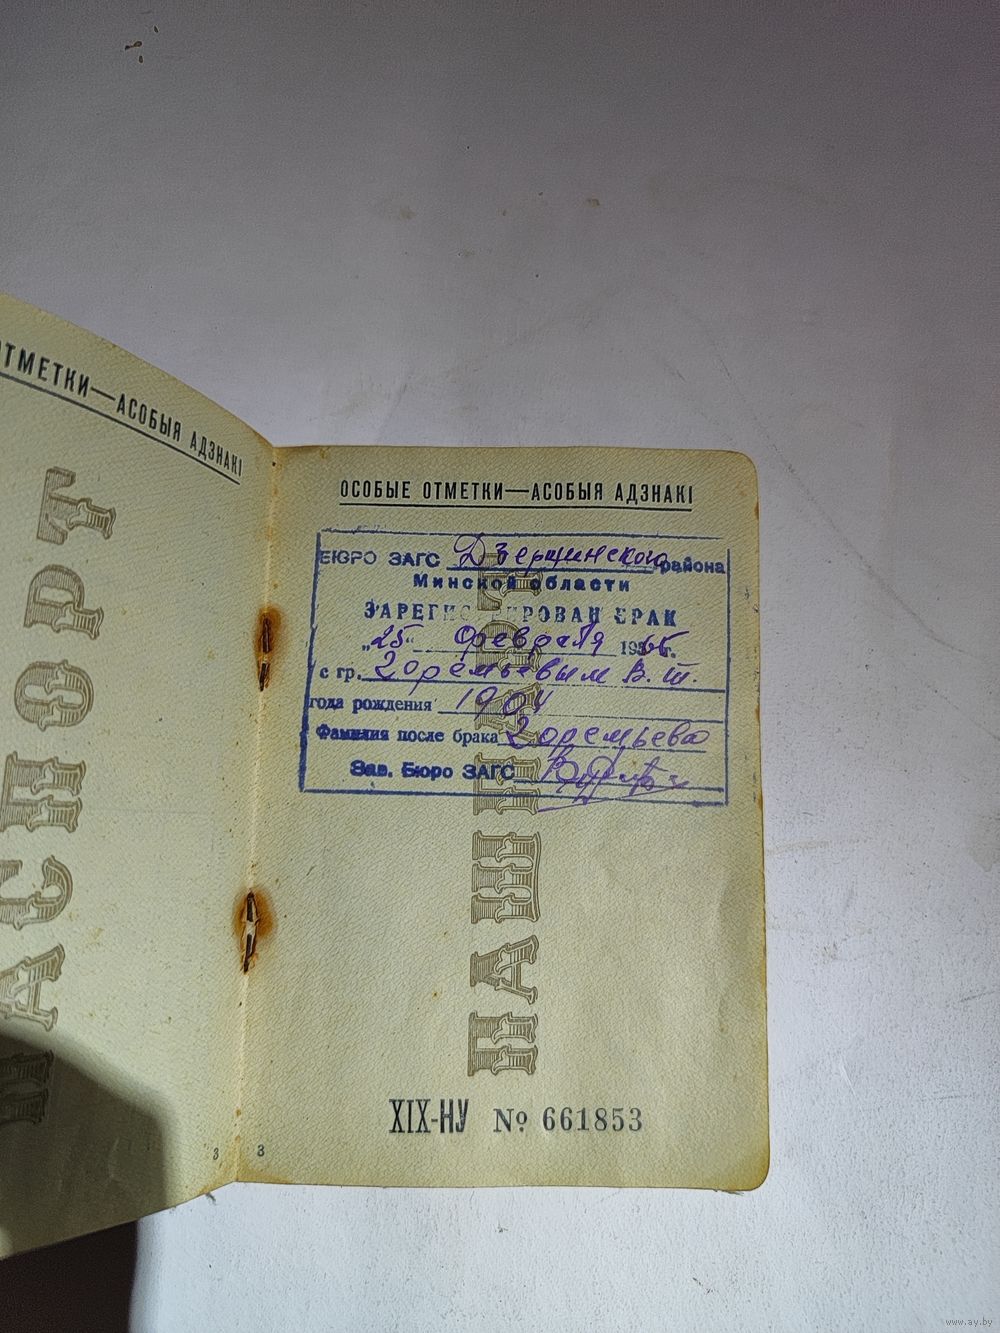 ОТМЕТКИ—АСОБЫЯ АДЗНАКІ
ПАСПОРТ
3
ОСОБЫЕ ОТМЕТКИ—АСОБЫЯ АДЗНАКІ
БЮРО ЗАГС Дзержинского района
Минской области
ЗАРЕГИСТРИРОВАН БРАК
„25“ февраля 1965г.
с гр. Горемьевым В. т.
года рождения 1904
Фамилия после брака Горемьева
Зав. Бюро ЗАГС
ПАШПАРТ
XIX-НУ № 661853
3
www.ay.by